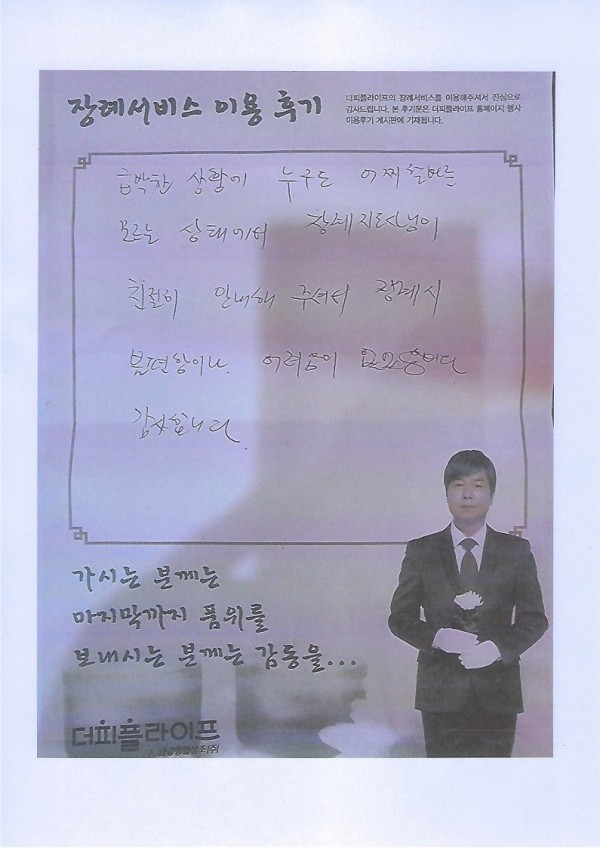 장례서비스 이용 후기
더피플라이프의 장례서비스를 이용해주셔서 진심으로
감사드립니다. 본 후기문은 더피플라이프 홈페이지 행사
이용후기 게시판에 기재됩니다.
급박한 상황에 누구도 어찌할바를
모르는 상태에서 장례지도사님이
친절히 안내해 주셔서 장례시
불편함이나 어려움이
감사합니다
가시는 분께는
마지막까지 품위를
보내시는 분께는 감동을...
더피플라이프